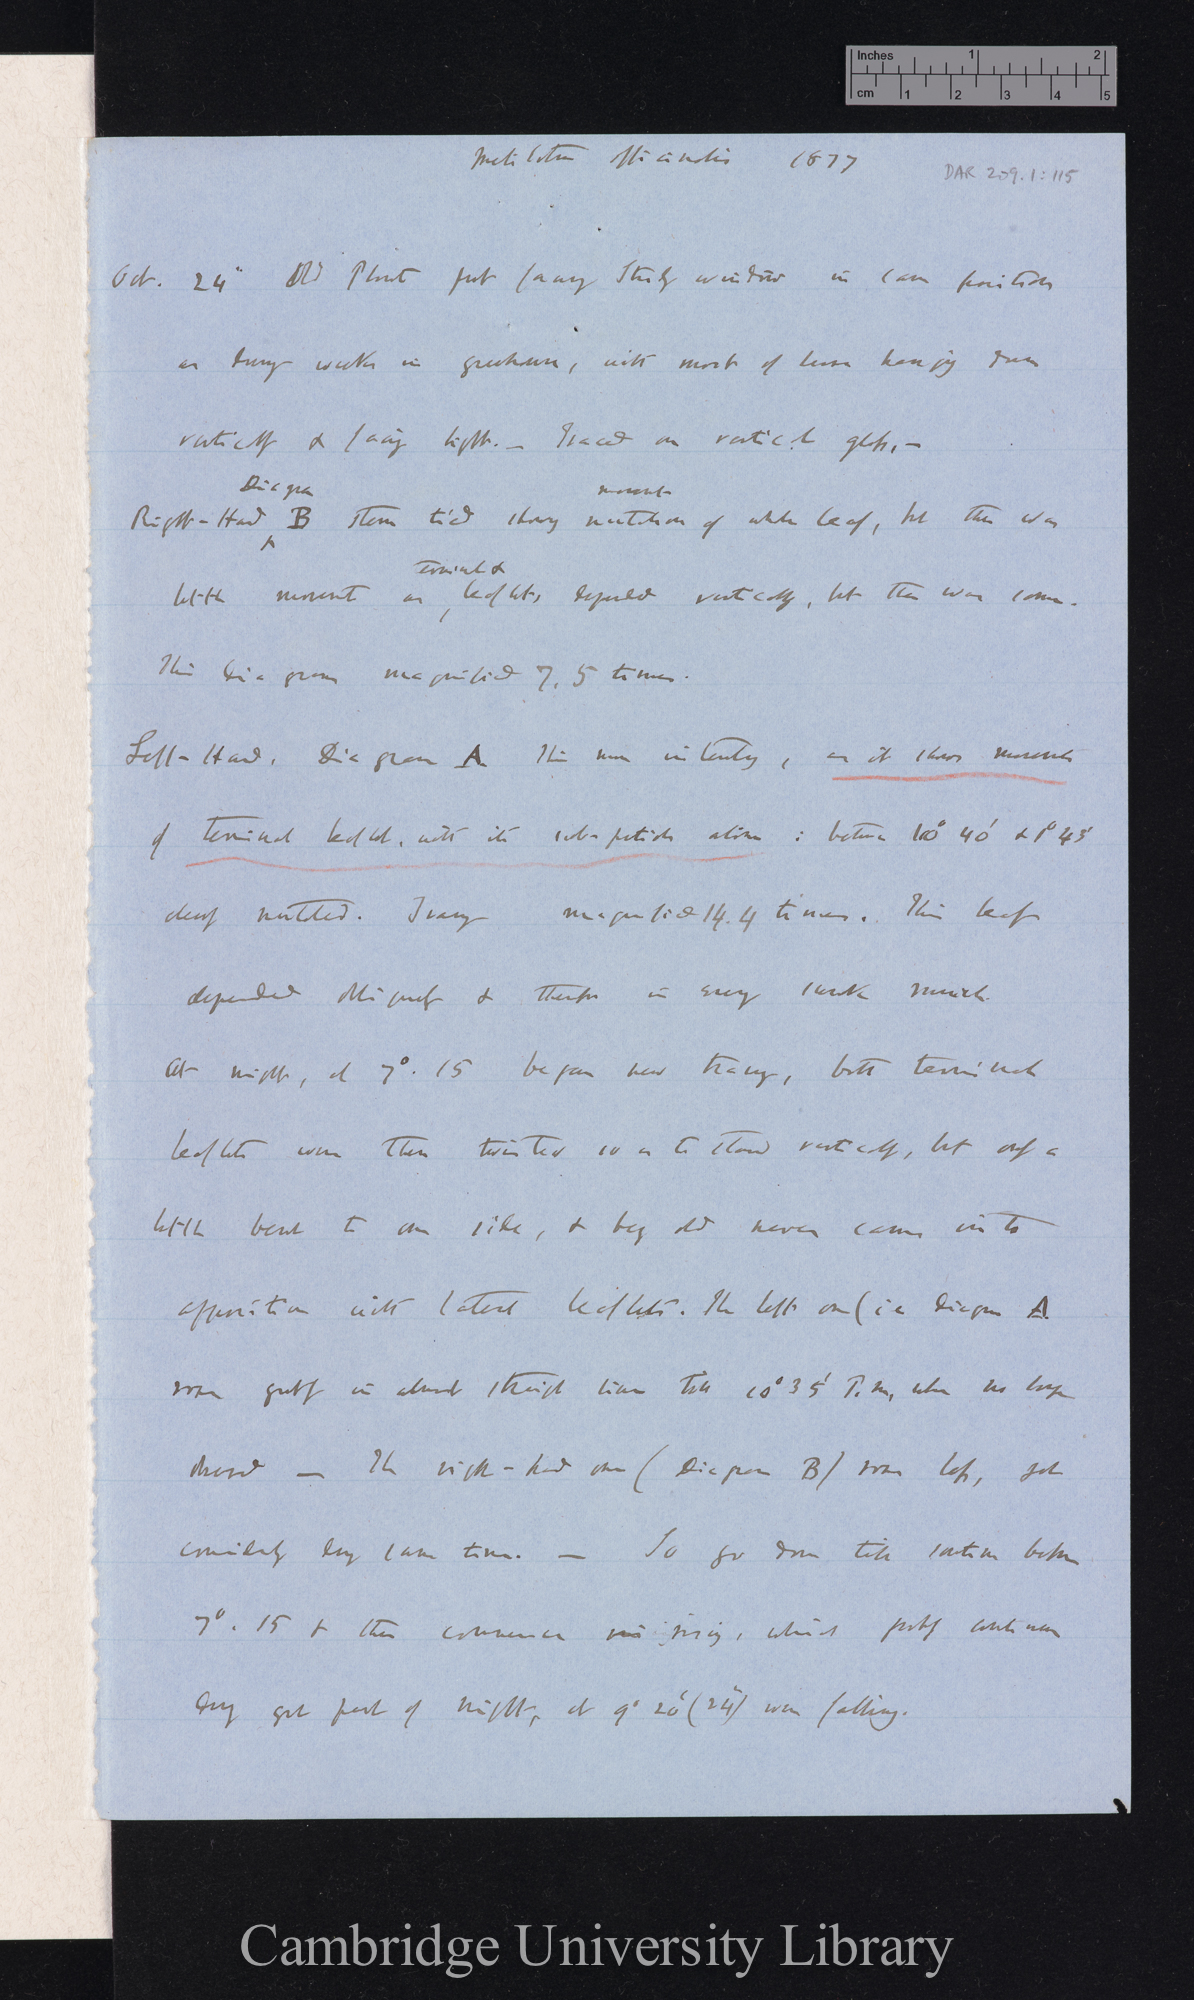 Inches 1 2
cm 1 2 3 4 5
Melilotus officinalis 1877
DAR 209.1:115
Oct. 24th Old Plant put facing Study window in same position
as during weeks in greenhouse, with most of leaves hanging down
vertically & facing light. — Traced on vertical glass, —
Diagram movement
Right-Hand B stem tied shows of whole leaf, but there was
terminal &
little movement as leaflets, depended vertically, but there was some.
This Diagram magnified 7.5 times.
Left-Hand, Diagram A This more interesting, as it shows movements
of terminal leaflet, with its sub-petiole alone; between 10° 40' & 1° 45'
Tracing magnified 14.4 times. This leaf
depended obliquely &
At night, at 7°. 15 began new tracing, both terminal
leaflets were then twisted so as to stand vertically, but only a
little bent to one side, & being old never came into
apposition with lateral leaflets. The left one (ie Diagram A
rose greatly in almost straight line till 10° 35' P.m, when no longer
observed — The right-hand one (Diagram B) rose less, but
considerably during same time. — So go down till sometime before
7°. 15 & then commence rising, which probably continues
during great part of night, at 9° 20' (24th) was falling.
Cambridge University Library